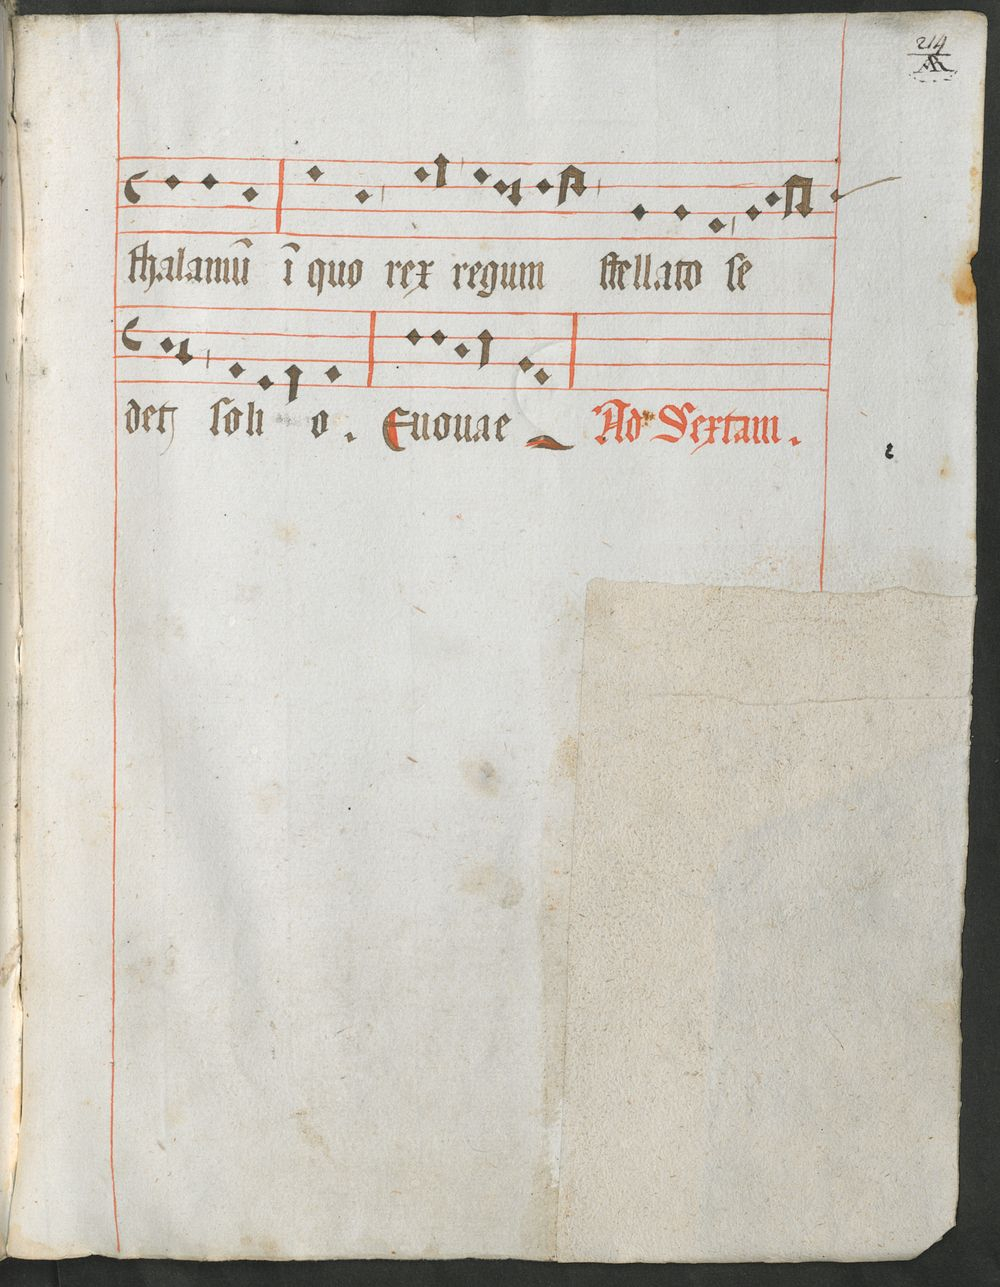 214
AR
thalamū ī quo rex regum stellato se
det soli o. Euouae Ad Sextam.